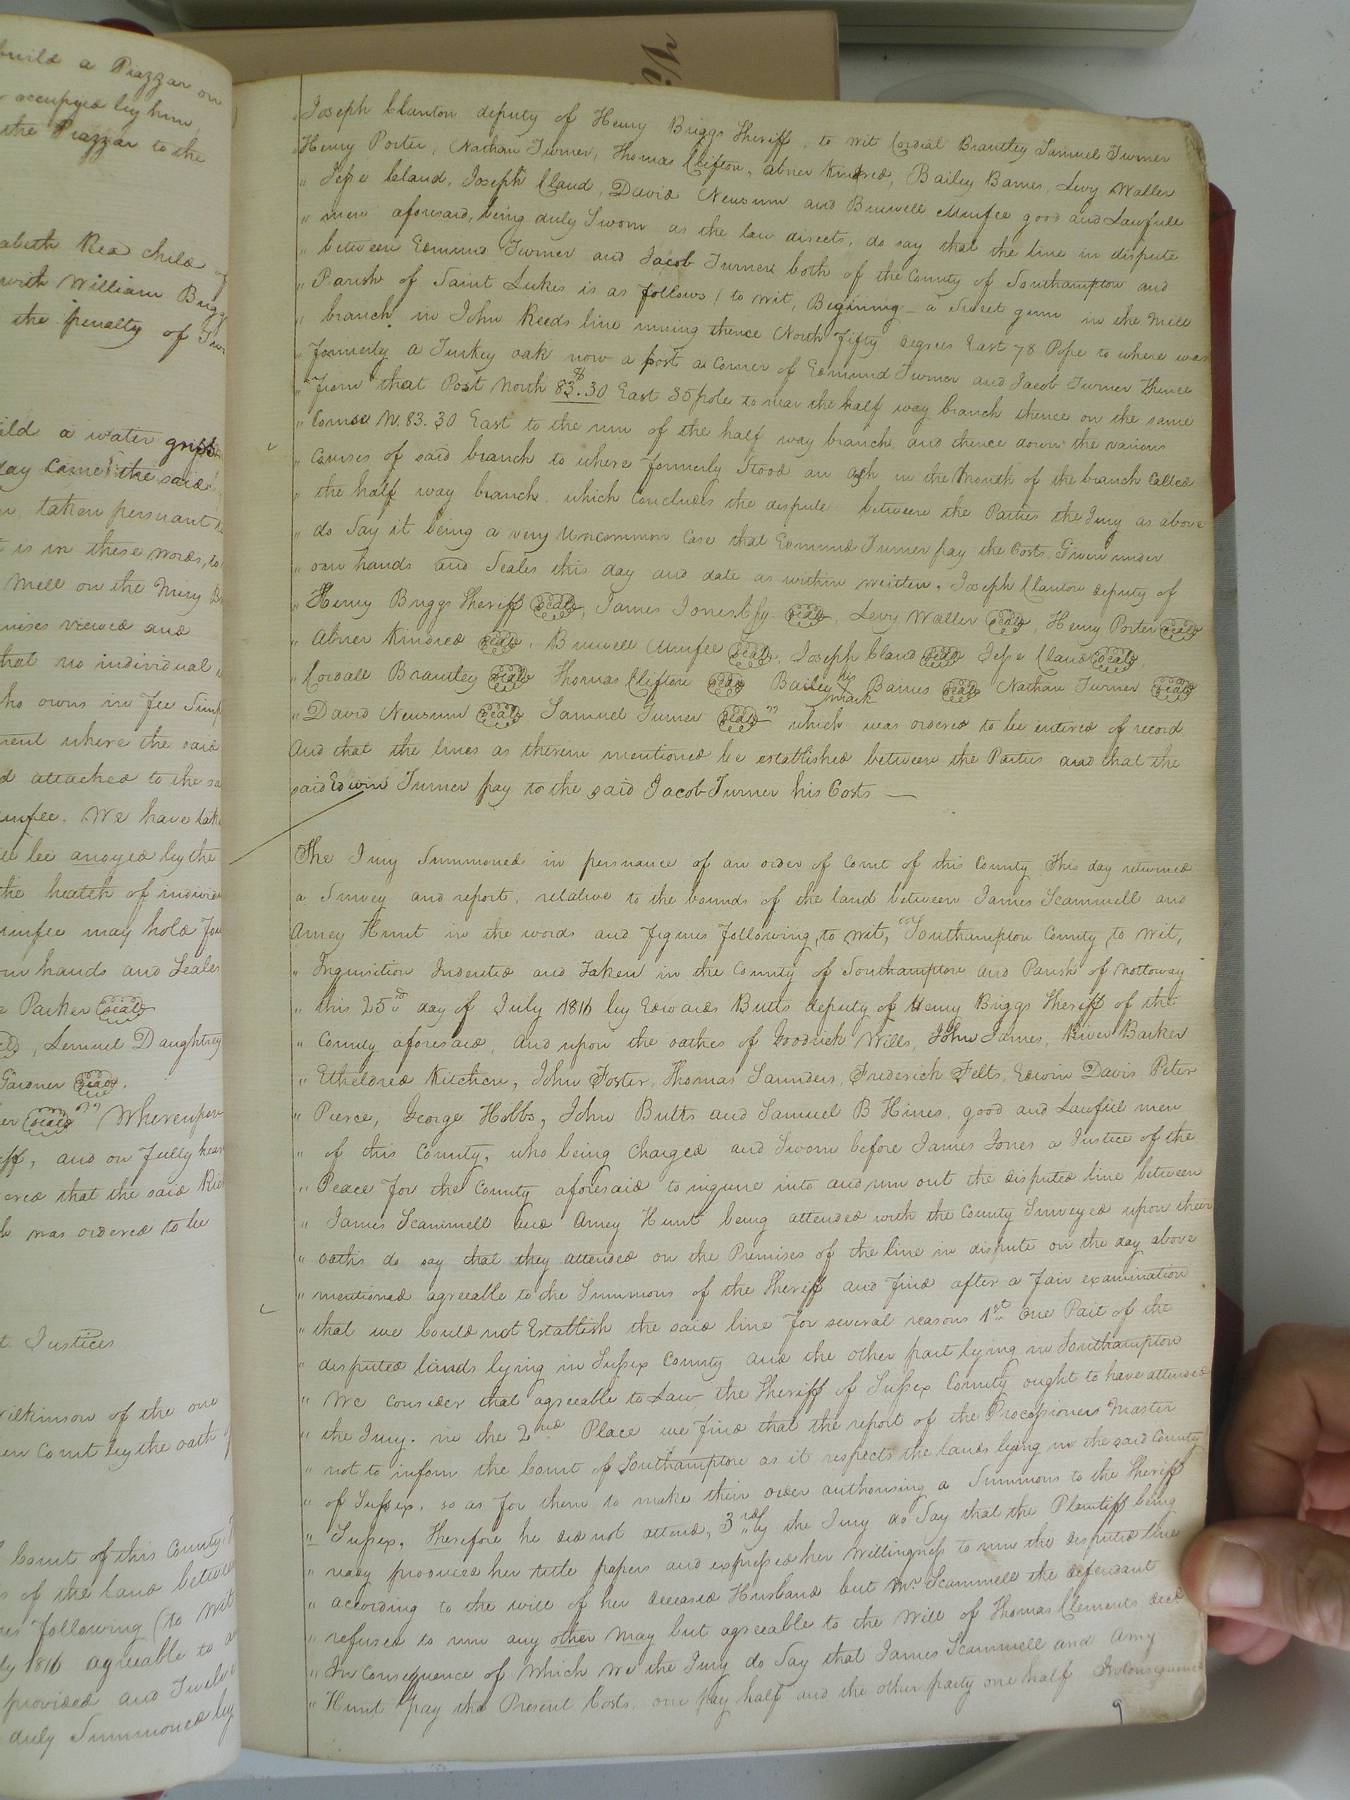 build a Piazzar on
occupyed by him
the Piazzar to the
abeth Rea child of
with William Brigg
the penalty of
ild a water
day came the said
taken persuant
is in these words, to
Mill on the
mises viewed and
that no individual
ho owns in fee Simp
ment where the said
d attached to the sa
umfee. We have tak
be anoyed by the
the health of individ
umfee may hold
our hands and Seales
Parker seal
Lemuel Daughtrey
Gardner seal
seal" Whereupon
iff, and on fully hear
ered that the said
h was ordered to be
t Justices
Wilkinson of the one
en Court by the oath
Court of this County
s of the land between
following (to wit
ly 1816 agreeable to a
provided and Twelve
duly Summoned by
Joseph Clanton deputy of Henry Briggs Sheriff, to wit Cordial Brantley Samuel Turner
Henry Porter, Nathan Turner, Thomas Clifton, abner Kindred, Bailey Barnes, Levy Waller
" Jesse Claud, Joseph Claud, David Newsum and Burwell Umfee good and Lawfull
" men aforesaid, being duly Sworn as the law directs, do say that the line in dispute
" between Edmund Turner and Jacob Turner both of the County of Southampton and
" Parish of Saint Lukes is as follows (to wit, Begining a Sweet gum in the Mill
" branch in John Reeds line runing thence North fifty degrees East 78 Pope to where was
" formerly a Turkey oak now a post a corner of Edmund Turner and Jacob Turner thence
" from that Post North 83.30 East 35 pole to near the half way branch thence on the same
" Course N. 83. 30 East to the run of the half way branch and thence down the various
" Courses of said branch to where formerly Stood an ash in the Mouth of the branch Called
" the half way branch, which Concludes the dispute between the Parties the Jury as above
" do Say it being a very Uncommon Case that Edmund Turner pay the Costs. Given under
" our hands and Seales this day and date as within written, Joseph Clanton deputy of
" Henry Briggs Sheriff seal, James Jones seal, Levy Waller seal, Henry Porter seal
" Abner Kindred seal, Burwell Umfee seal, Joseph Claud seal Jesse Claud seal,
" Cordall Brantley seal Thomas Clifton seal Bailey his X mark Barnes seal Nathan Turner seal
" David Newsum seal Samuel Turner seal" which was ordered to be entered of record
And that the lines as therein mentioned be established between the Parties and that the
said Edwin Turner pay to the said Jacob Turner his Costs —
The Jury Summoned in persuance of an order of Court of this County This day returned
a Survey and report, relative to the bounds of the land between James Scammell and
Amey Hunt in the words and figures following, to wit, "Southampton County, to wit,
" Inquisition Indented and Taken in the County of Southampton and Parish of Nottoway
" this 25th day of July 1816 by Edwards Butts deputy of Henry Briggs Sheriff of the
" County aforesaid, and upon the oathes of Goodrich Wills, John James, River Barker
" Etheldred Kitchen, John Foster, Thomas Saunders, Frederick Felts, Edwin Davis Peter
" Pierce, George Hobbs, John Butts and Samuel B Hines, good and Lawful men
" of this County, who being Charged and Sworn before James Jones a Justice of the
" Peace for the County aforesaid to inquire into and run out the disputed line between
" James Scammell and Amey Hunt being attended with the County Surveyed upon their
" oaths do say that they attended on the Premises of the line in dispute on the day above
" mentioned agreeable to the Summons of the Sheriff and find after a fair examination
" that we Could not Establish the said line for several reasons 1st One Part of the
" disputed lands lying in Sussex County and the other part lying in Southampton
" We consider that agreeable to Law the Sheriff of Sussex County ought to have attended
" the Jury. in the 2nd Place we find that the report of the Processioners Master
" not to inform the Court of Southampton as it respects the lands lying in the said County
" of Sussex, so as for them to make their order authorising a Summons to the Sheriff
" Sussex, Therefore he did not attend, 3rdly the Jury do Say that the Plaintiff being
" ready produced her title papers and expressed her Willingness to run the disputed line
" according to the will of her deceased Husband but Mr Scammell the defendant
" refused to run any other way but agreeable to the Will of Thomas Clements decd
" In Consequence of Which We the Jury do Say that James Scammell and Amy
" Hunt pay the Present Costs. one pay half and the other party one half In Consequence
9